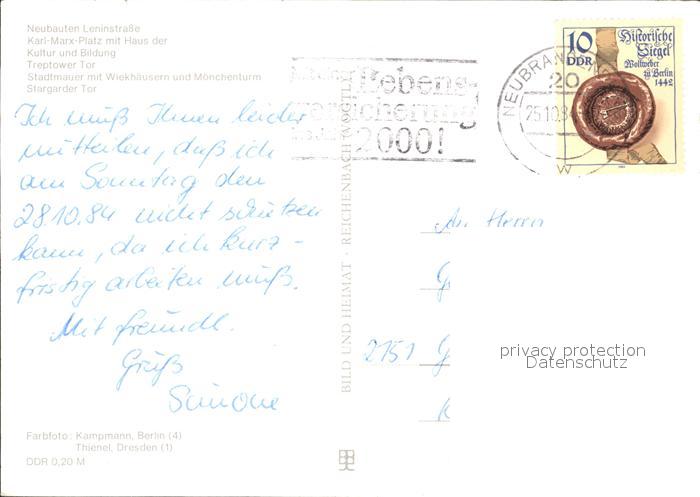 Neubauten Leninstraße
Karl-Marx-Platz mit Haus der
Kultur und Bildung
Treptower Tor
Stadtmauer mit Wiekhäusern und Mönchenturm
Stargarder Tor
Ich muß Ihnen leider
mitteilen, daß ich
am Sonntag den
28.10.84 nicht
kann, da ich kurz-
fristig arbeiten muß.
Mit freundl.
Gruß
Simone
Farbfoto: Kampmann, Berlin (4)
Thienel, Dresden (1)
DDR 0,20 M
BILD UND HEIMAT · REICHENBACH (VOGTL)
Lebens-
versicherung
2000!
NEUBRAND
20
25.10.84
W
10
DDR
Historische
Siegel
Wollweber
zu Berlin
1442
An Herrn
G
2151 G
K
privacy protection
Datenschutz